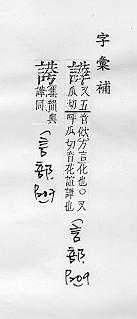 字彙補
又五音 方言花也〇又
瓜切呼瓜切音花諠譁也
(言部) P.09
集韻與
譁同
(言部) P.07